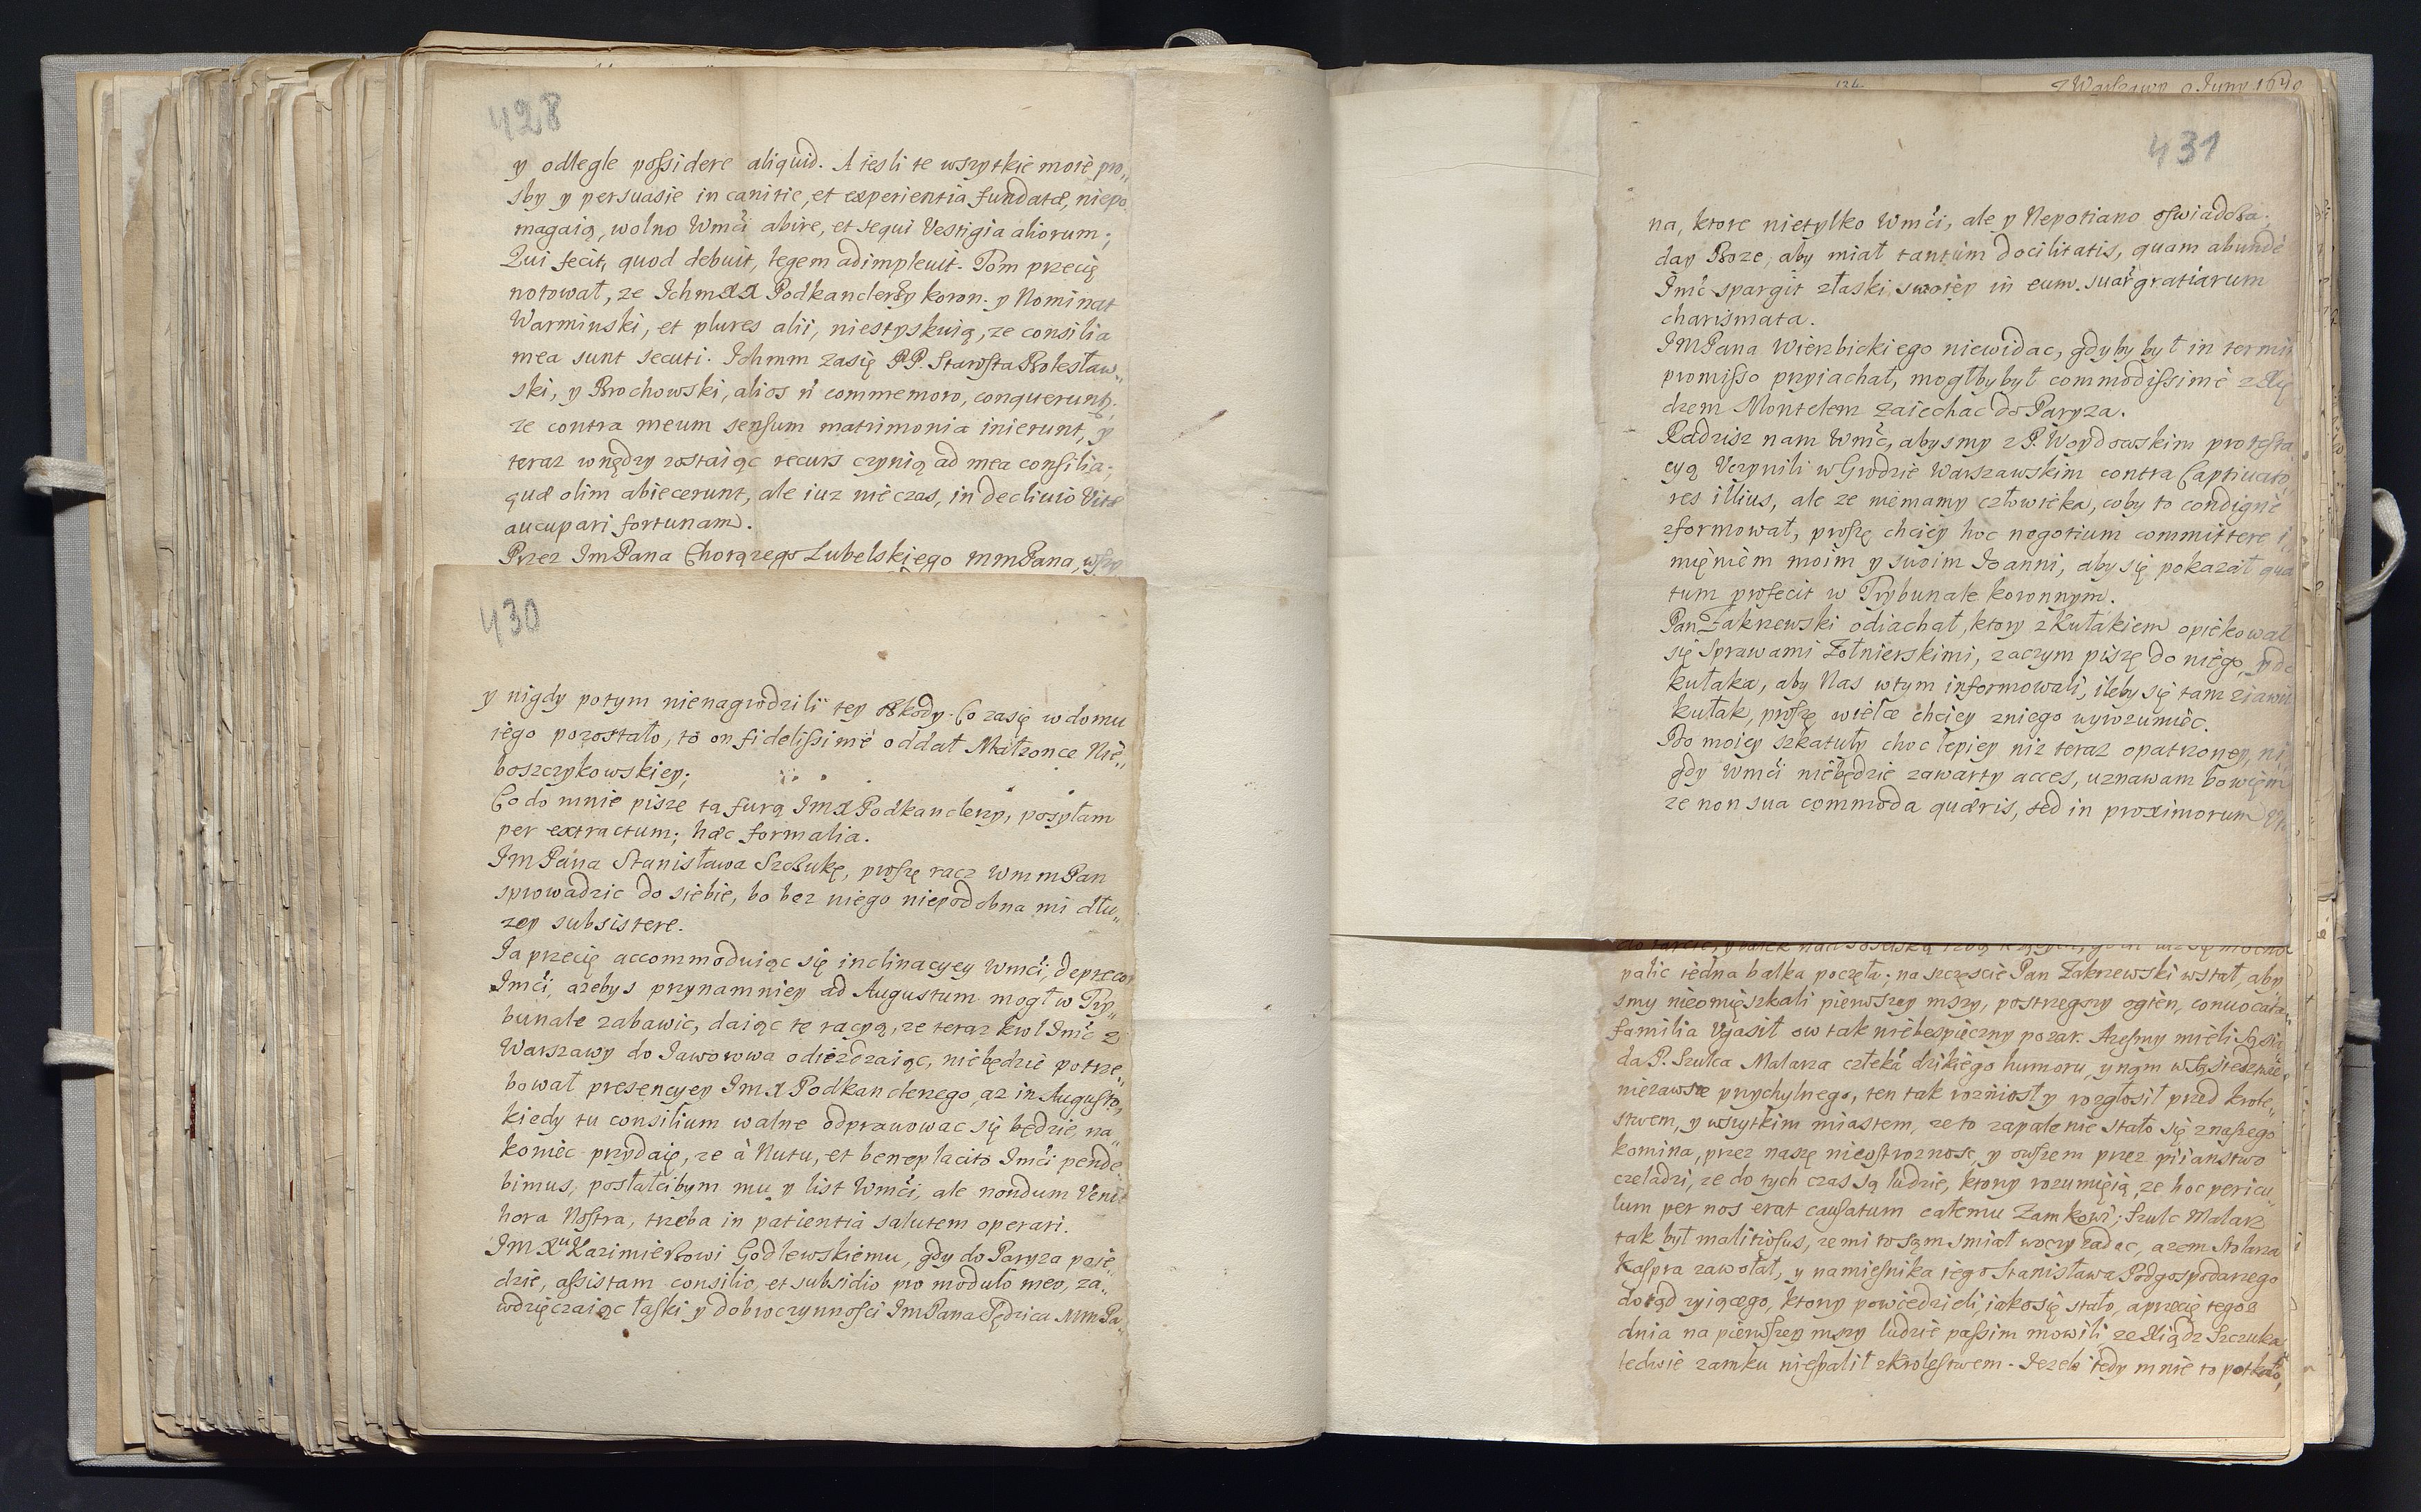 428
y odlegle possidere aliquid. A iesli te wszytkie moie pro„
sby y persuasie in canitie, et experientia fundatæ, niepo
magaią, wolno Wmći abire, et sequi Vestigia aliorum;
Qui fecit, quod debuit, legem adimpleuit. Tom przecię
notował, ze Ichmxx Podkanclerzy koron. y Nominat
Warminski, et plures alii, niestyskuią, ze consilia
mea sunt secuti. Ichmm zasię PP. Starosta Bolesław„
ski, y Brochowski, alios ñ commemoro, conquerunt
ze contra meum sensum matrimonia inierunt, y
teraz wnędzy zostaiąc recurs czynią ad mea consilia;
quæ olim abiecerunt, ale iuz nieczas, in decliuio Vitæ
aucupari fortunam.
Przez ImPana Chorązego Lubelskiego mmPana,
430
y nigdy potym nienagrodzili tey szkody. Co zasię w domu
iego pozostało, to on fidelissimè oddał Małzonce Nie„
boszczykowskiey;
Co do mnie pisze tą furą ImX Podkanclerzy, posyłam
per extractum; hæc formalia.
ImPana Stanisława Szczukę, proszę racz WmmPan
sprowadzic do siebie, bo bez niego niepodobna mi dłu„
zey subsistere.
Ia przecię accommoduiąc się inclinacyey Wmći, deprecor
Imći, azebys przynamniey ad Augustum mogł w Try„
bunale zabawic, daiąc tę racyą, ze teraz krol Imć z
Warszawy do Iaworowa odiezdzaiąc, niebędzie potrze„
bował presencyey ImX Podkanclerzego, az in Augusto,
kiedy tu consilium walne odprawowac się będzie, na„
koniec przydaię, ze à Nutu, et beneplacito Imći pende
bimus, posłałcibym mu y list Wmći, ale nondum Venit
hora Nostra, trzeba in patientia salutem operari.
ImXu Kazimierzowi Godlewskiemu, gdy do Paryza poie„
dzie, assistam consilio, et subsidio pro modulo meo, za„
wdzięczaiąc łaski y dobroczynnosci ImPana Sędzica MmPa„
Z Warszawy 9 Juny 1690
124
431
na, ktore nietylko Wmći, ale y Nepotiano oswiadcza.
day Boze, aby miał tantùm docilitatis, quam abundè
Imć spargit złaski swoiey in eum suar̃ gratiarum
charismata.
IMPana Wierzbickiego niewidac, gdyby był in termi
promisso przyiachał, mogłby był commodissimè z Xię
dzem Montelem zaiechac do Paryza.
Radzisz nam Wmć, abysmy z P. Woydowskim protesta
cyą Vczynili w Grodzie Warszawskim contra Captiuato
res illius, ale ze niemamy człowieka, coby to condignè
zformował, proszę chciey hoc negotium committere i
mięniem moim y swoim Ioanni, aby się pokazał qua
tum profecit w Trybunale koronnym.
Pan Zakrzewski odiachał, ktory z Kułakiem opiekował
się Sprawami Zołnierskimi, zaczym piszę do niego, y do
kułaka, aby Nas wtym informowali, ileby się tam ziawił
kułak, proszę wielce chciey zniego wyrozumiec.
Do moiey szkatuły choc lepiey niz teraz opatrzoney, ni
gdy Wmći niebędzie zawarty acces, uznawam bowiem
ze non sua commoda quæris, sed in proximorum
palic iedna balka poczęła; na szczęscie Pan Zakrzewski wstał, aby
smy nieomięszkali pierwszey mszy, postrzegszy ogien, conuocata
familia Vgasił ow tak niebespieczny pozar. Azesmy mieli Sąsia
da P. Szulca Malarza człeka dzikiego humoru, y nam w Sąsiedztwie
niezawsze przychylnego, ten tak rozniosł y rozgłosił przed krole„
stwem, y wszytkim miastem, ze to zapalenie stało się znaszego
komina, przez naszę nieostroznosc, y owszem przez piianstwo
czeladzi, ze do tych czas są ludzie, ktorzy rozumieią, ze hoc pericu„
lum per nos erat causatum całemu Zamkowi; Szulc Malarz
tak był malitiosus, ze mi to sąm smiał woczy zadac, azem Stolarza
Kaspra zawołał, y namiesnika iego Stanisława Podgospodarzego
dotąd zyiącego, ktorzy powiedzieli, iako się stało, a przecię tegoz
dnia na pierwszey mszy ludzie passim mowili, ze Xiądz Szczuka
ledwie zamku niespalił zkrolestwem. Iezeli tedy mnie to potkało,